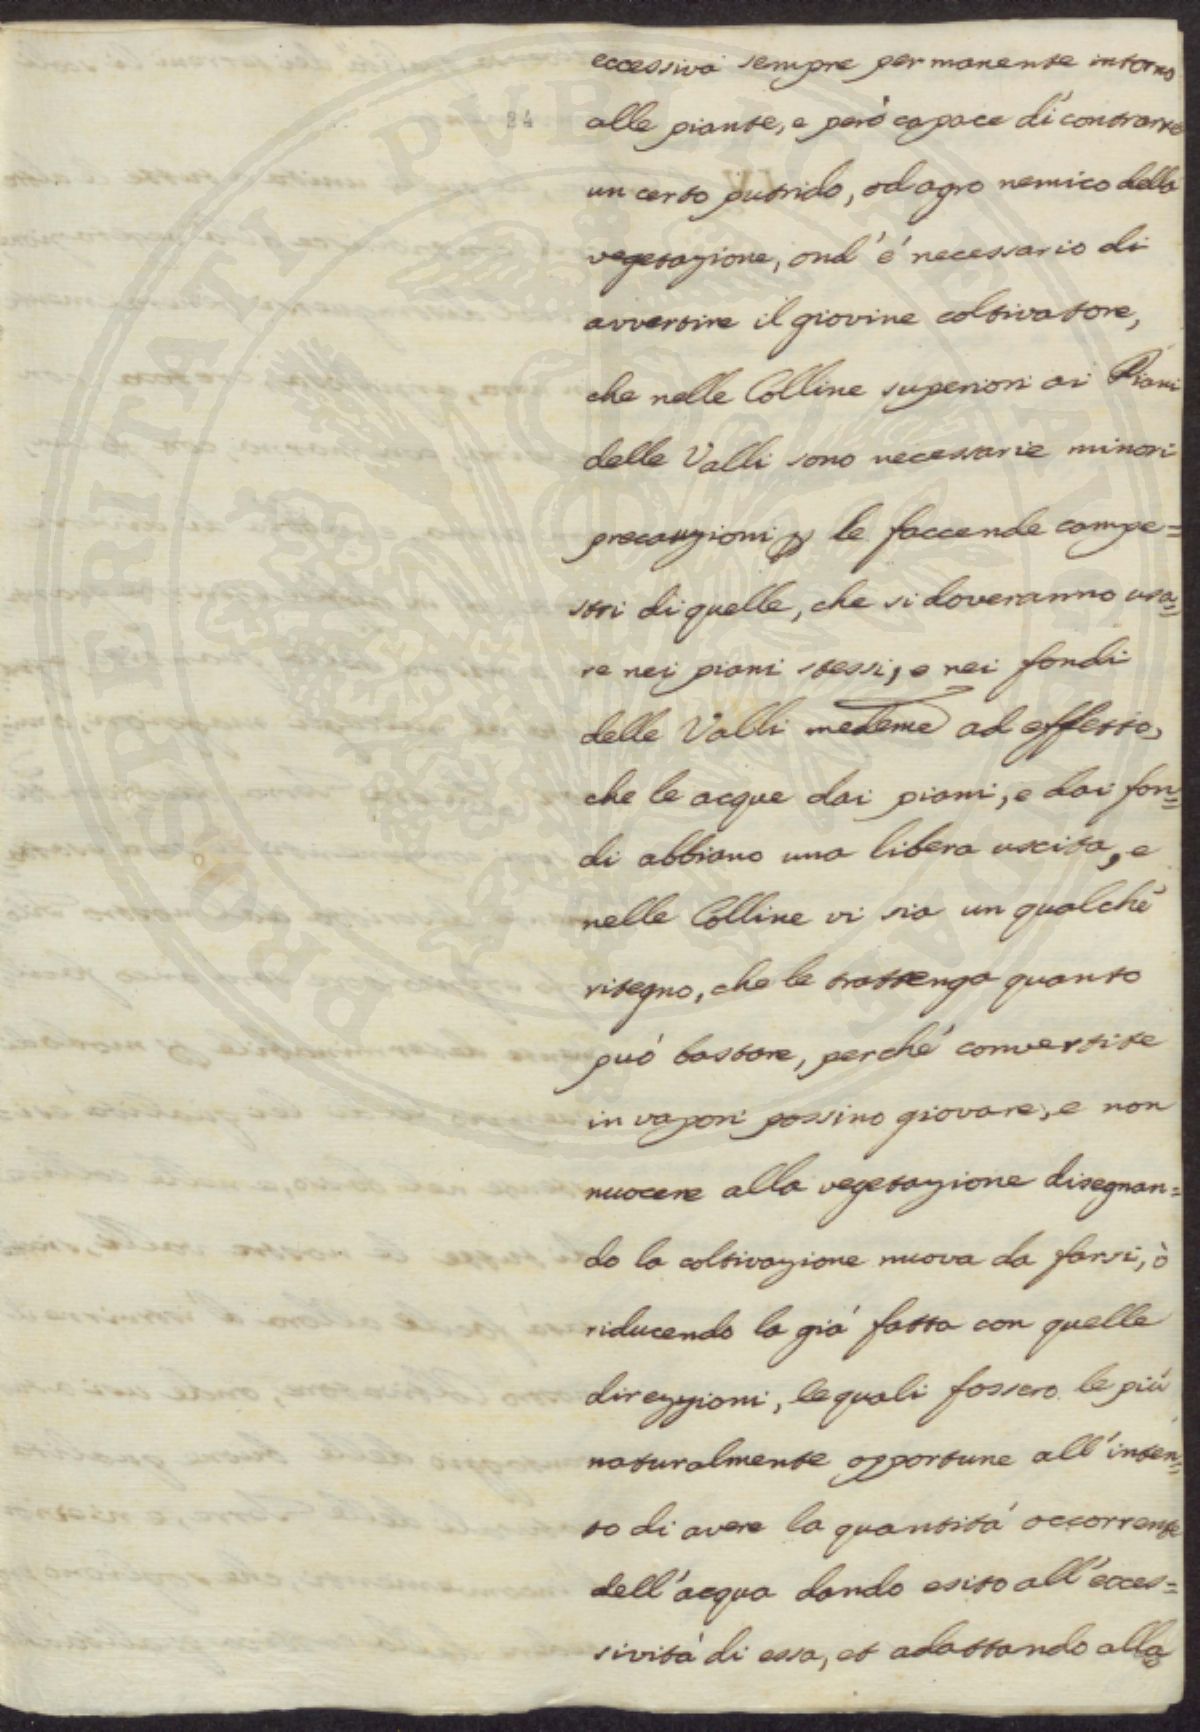 eccessiva sempre permanente intorno
alle piante, e però capace di contrarre
un certo putrido, od agro nemico della
vegetazione, ond' è necessario di
avvertire il giovine coltivatore,
che nelle Colline superiori ai Piani
delle Valli sono necessarie minori
precauzioni le faccende campe=
stri di quelle, che si doveranno usa=
re nei piani stessi, e nei fondi
delle Valli medeme ad effetto,
che le acque dai piani, e dai fon=
di abbiano una libera uscita, e
nelle Colline vi sia un qualche
ritegno, che le trattenga quanto
può bastare, perché convertite
in vapori possino giovare, e non
nuocere alla vegetazione disegnan=
do la coltivazione nuova da farsi, ò
riducendo la già fatta con quelle
direzzioni, le quali fossero le più
naturalmente opportune all' inten=
to di avere la quantità occorrente
dell' acqua dando esito all' ecces=
sività di essa, et adattando alla
PROSPERITATI PUBLICAE
84